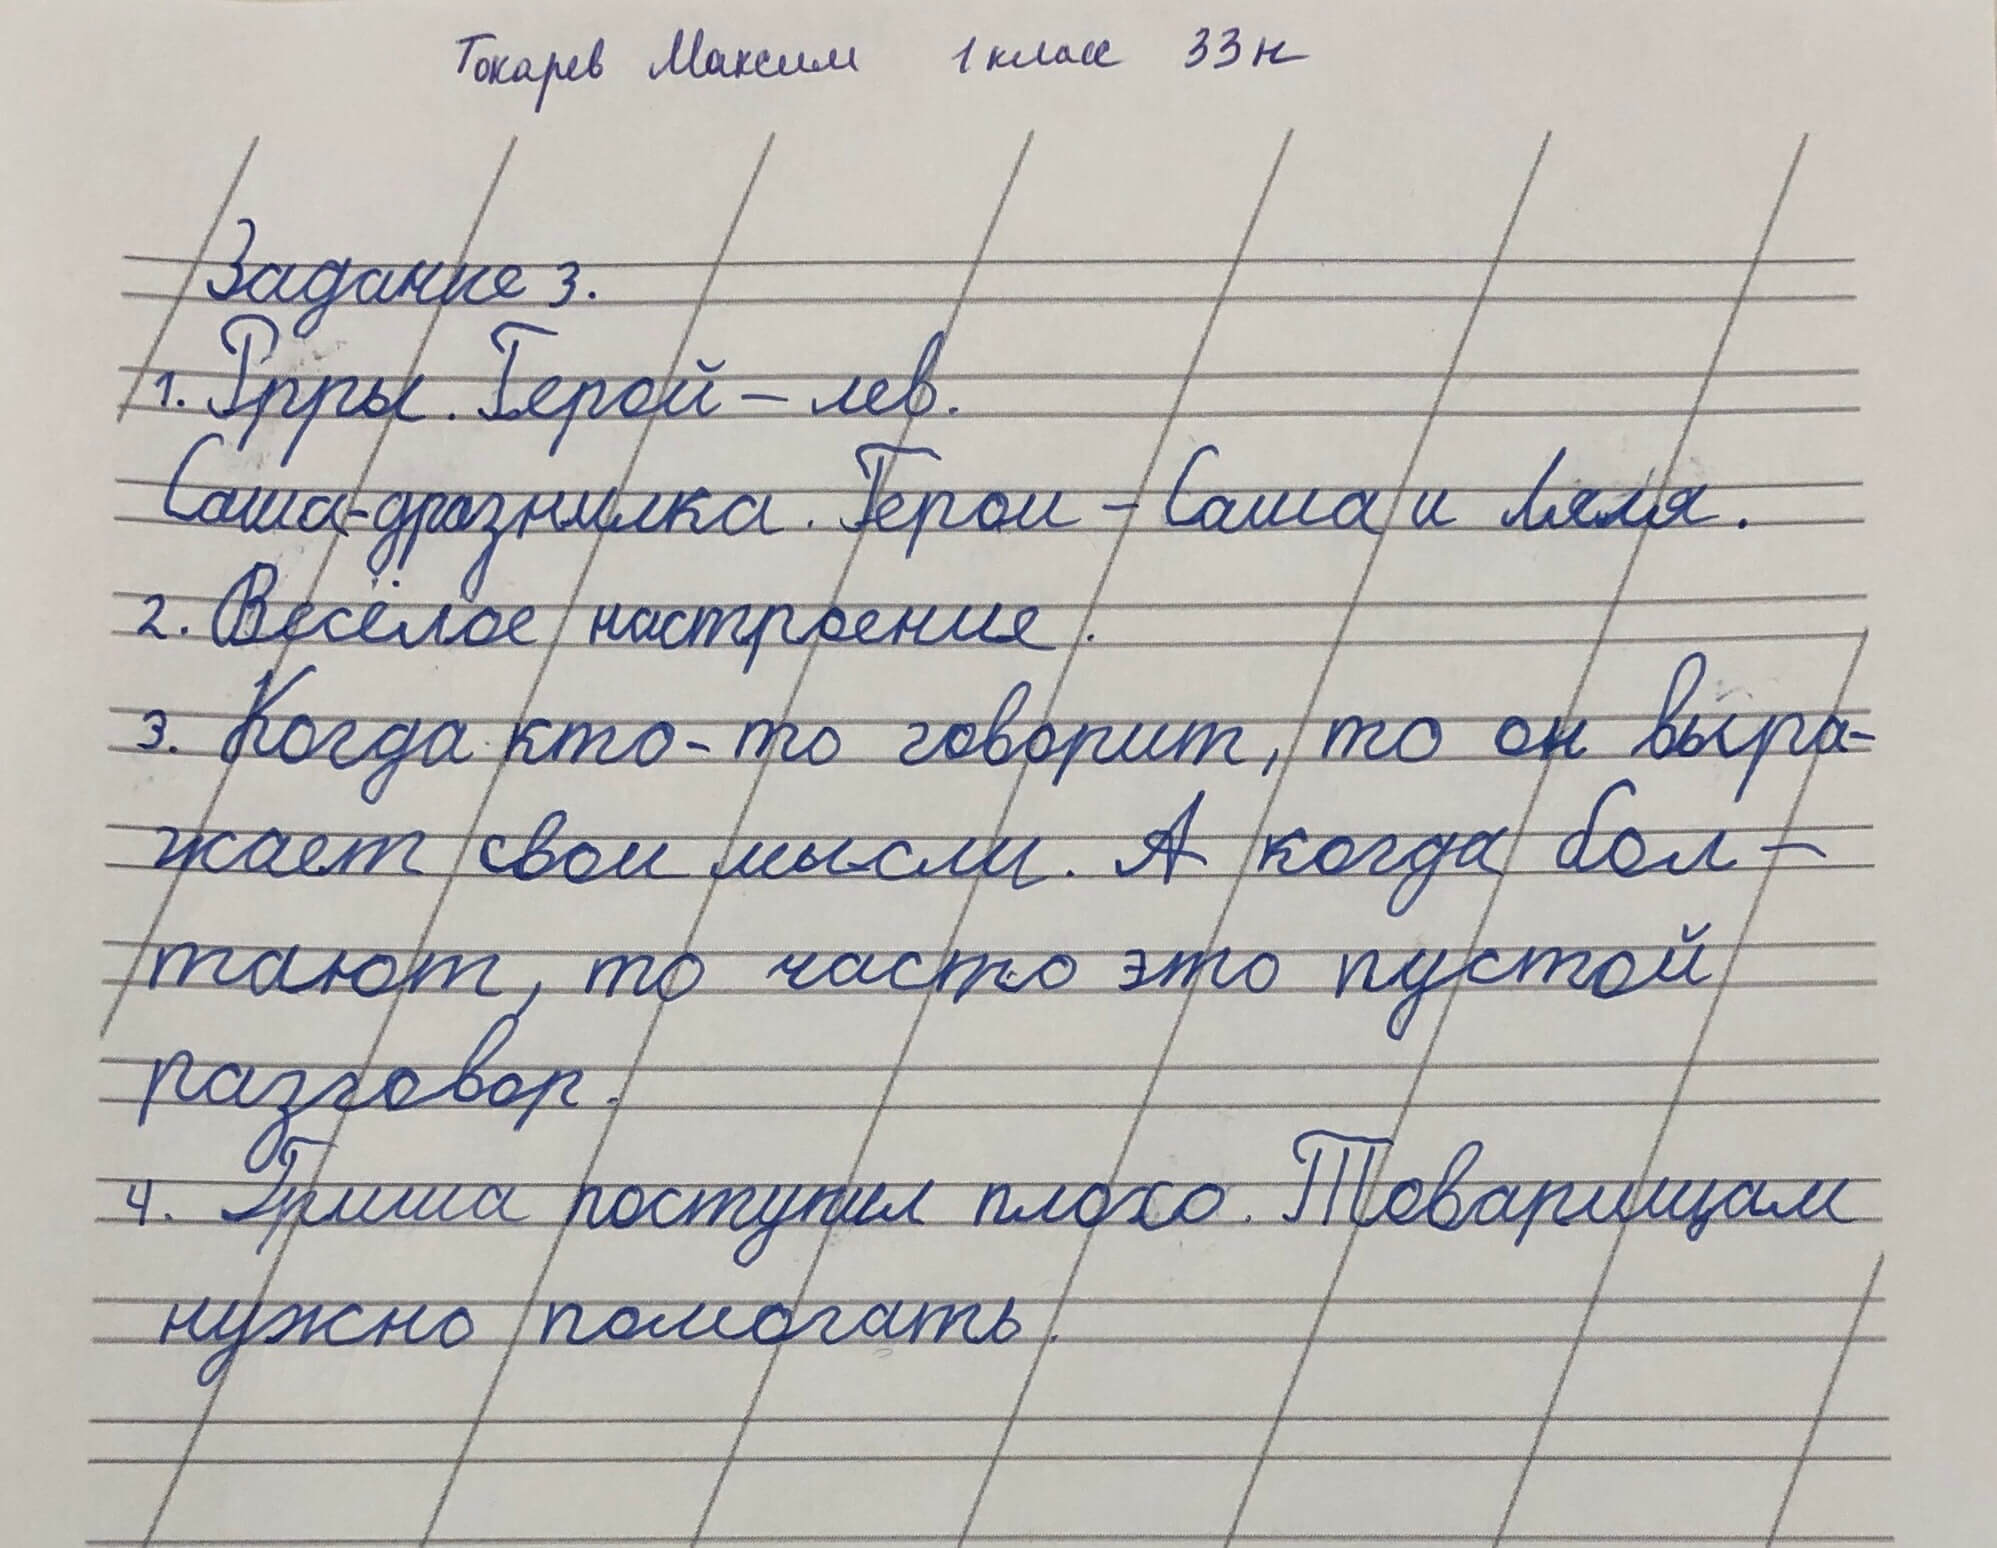 Токарев Максим 1 класс 33н
Задание 3.
1. Рррры. Герой – лев.
Саша-дразнилка. Герои – Саша и Ляля.
2. Весёлое настроение.
3. Когда кто-то говорит, то он выра-
жает свои мысли. А когда бол-
тают, то часто это пустой
разговор.
4. Гриша поступил плохо. Товарищам
нужно помогать.